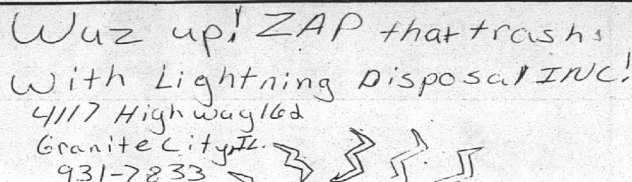 Wuz up! ZAP that trash
With Lightning Disposal INC!
4117 Highway 162
Granite City, IL.
931-7833